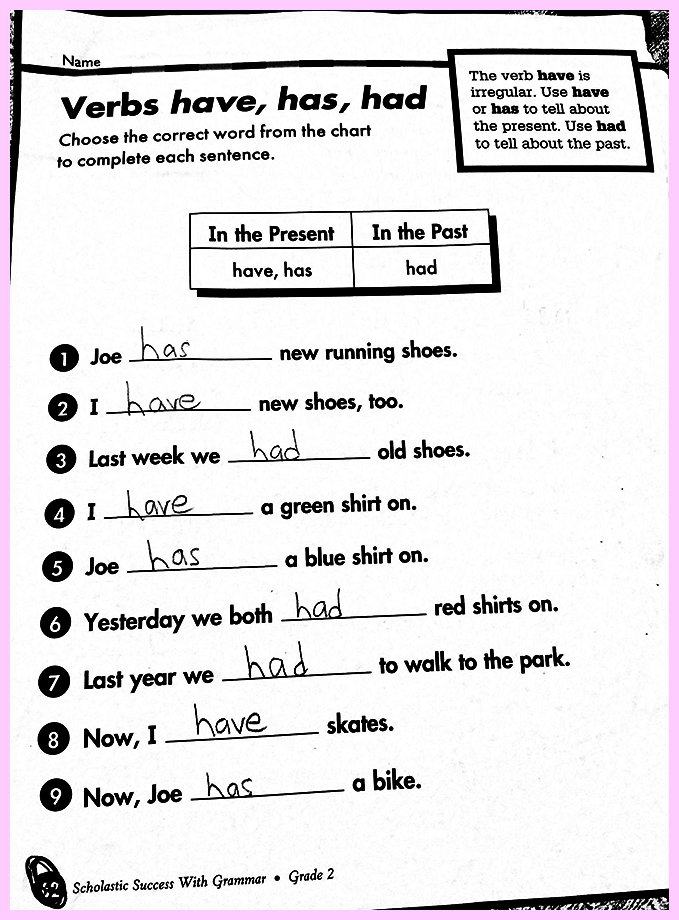 Name
Verbs have, has, had
Choose the correct word from the chart
to complete each sentence.
The verb have is
irregular. Use have
or has to tell about
the present. Use had
to tell about the past.
In the Present In the Past
have, has had
1 Joe has new running shoes.
2 I have new shoes, too.
3 Last week we had old shoes.
4 I have a green shirt on.
5 Joe has a blue shirt on.
6 Yesterday we both had red shirts on.
7 Last year we had to walk to the park.
8 Now, I have skates.
9 Now, Joe has a bike.
Scholastic Success With Grammar • Grade 2